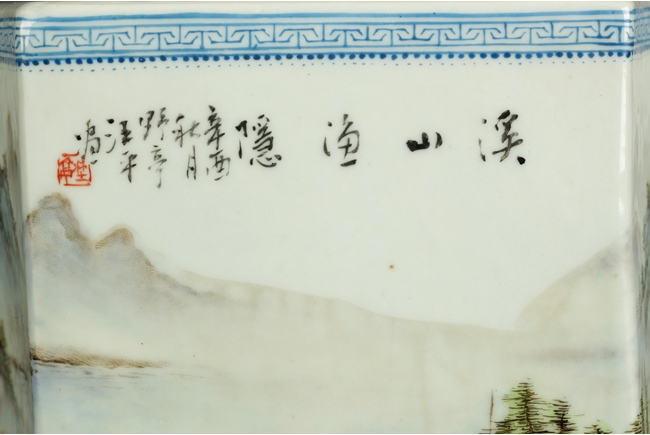 溪山渔隱
辛酉
秋月
野亭
汪平